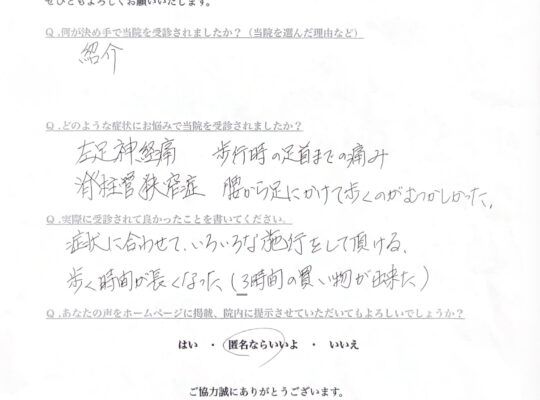 ぜひともよろしくお願いいたします。
Q.何が決め手で当院を受診されましたか?(当院を選んだ理由など)
紹介
Q.どのような症状にお悩みで当院を受診されましたか?
左足神経痛 歩行時の足首までの痛み
脊柱管狭窄症 腰から足にかけて歩くのがむつかしかった。
Q.実際に受診されて良かったことを書いてください。
症状に合わせて、いろいろな施行をして頂ける、
歩く時間が長くなった(3時間の買い物が出来た)
Q.あなたの声をホームページに掲載、院内に提示させていただいてもよろしいでしょうか?
はい ・ 匿名ならいいよ ・ いいえ
ご協力誠にありがとうございます。